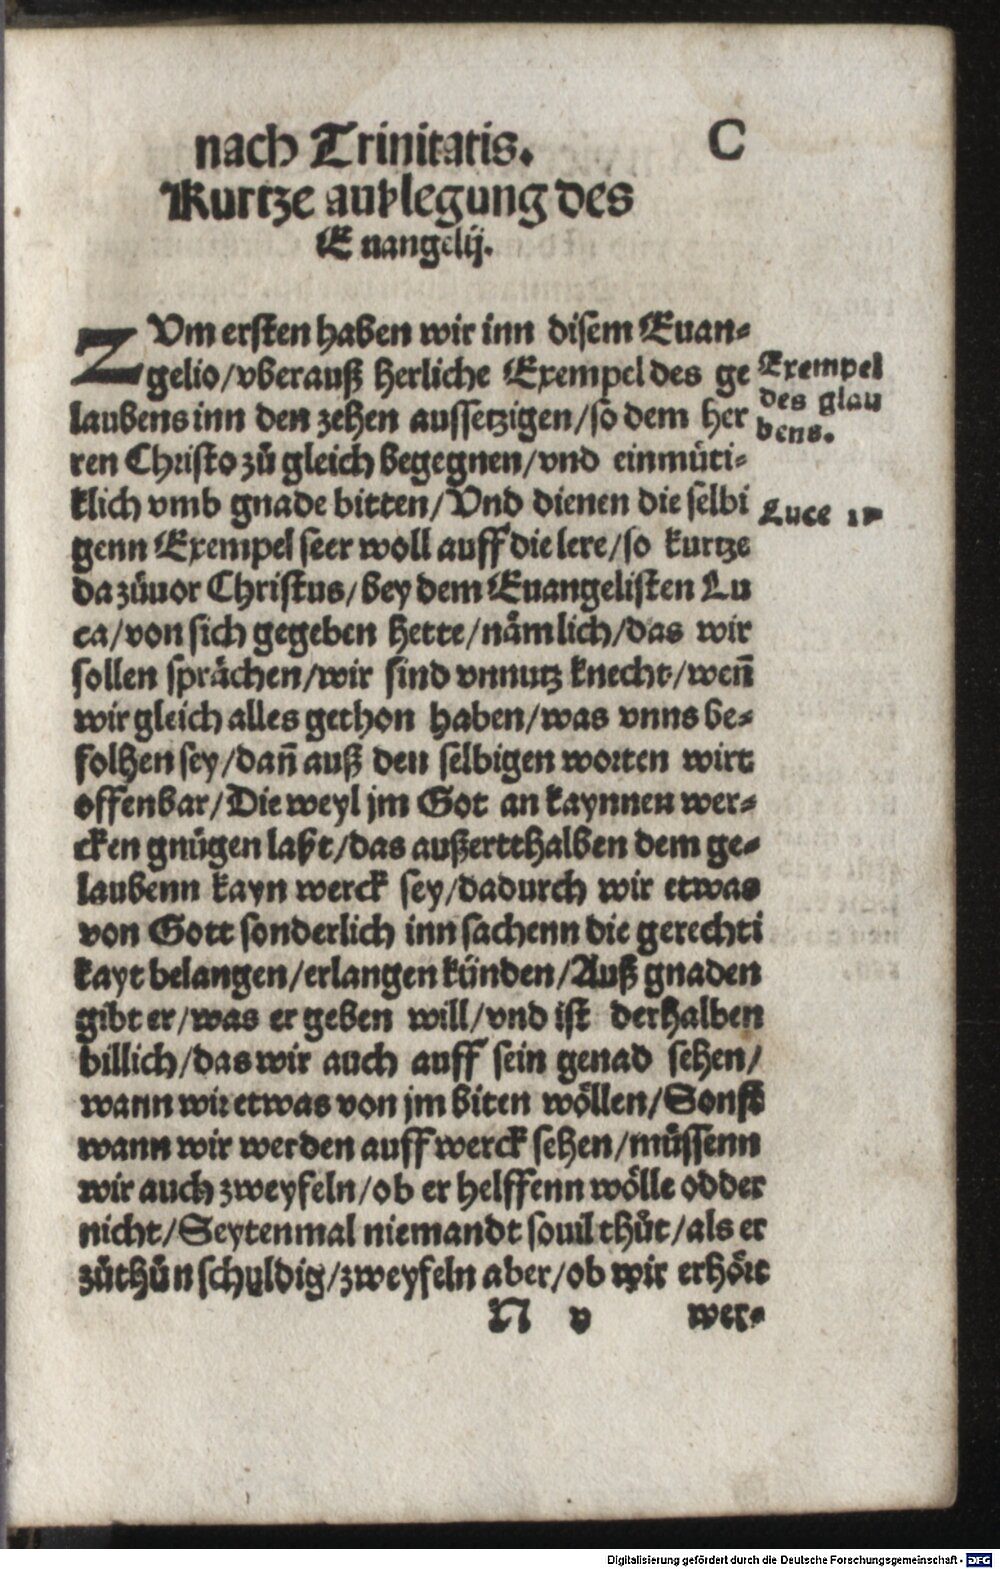 nach Trinitatis. C
Kurtze außlegung des
Euangelij.
ZVm ersten haben wir inn disem Euan-
gelio/vberauß herliche Exempel des ge
laubens inn den zehen aussetzigen/so dem her
ren Christo zů gleich begegnen/vnd einmüti-
klich vmb gnade bitten/Vnd dienen die selbi
genn Exempel seer woll auff die lere/so kurtze
da zůuor Christus/bey dem Euangelisten Lu
ca/von sich gegeben hette/nåmlich/das wir
sollen språchen/wir sind vnnutz knecht/weñ
wir gleich alles gethon haben/was vnns be-
folhen sey/dañ auß den selbigen worten wirt
offenbar/Die weyl jm Got an kaynnen wer-
cken gnügen laßt/das außertthalben dem ge-
laubenn kayn werck sey/dadurch wir etwas
von Gott sonderlich inn sachenn die gerechti
kayt belangen/erlangen künden/Auß gnaden
gibt er/was er geben will/vnd ist derhalben
billich/das wir auch auff sein genad sehen/
wann wir etwas von jm biten wöllen/Sonst
wann wir werden auff werck sehen/müssenn
wir auch zweyfeln/ob er helffenn wölle odder
nicht/Seytenmal niemandt souil thůt/als er
zůthůn schuldig/zweyfeln aber/ob wir erhört
N v wer-
Exempel
des glau
bens.
Luce 17
Digitalisierung gefördert durch die Deutsche Forschungsgemeinschaft - DFG